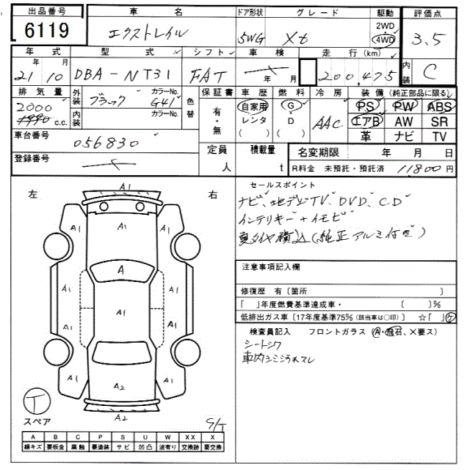 出品番号 車名 ドア形状 グレード 駆動 評価点
6119 エクストレイル 5WG Xt 2WD 4WD 3.5
年式 型式 シフト 車検 走行(km) 内装
21 10 DBA-NT31 FAT 200,475 C
排気量 外装 カラーNo. 色替 保証書 車歴 燃料 冷房 装備 (純正部品に限る)
2000 c.c. ブラック G41 有・無 自家用 レンタ G D AAC PS PW ABS
エアB AW SR
革 ナビ TV
車台番号
056830
定員 人 積載量 t 名変期限 年 月 日
登録番号
R料金 未預託・預託済 11800円
左 右
セールスポイント
ナビ、地デジTV、DVD、CD
インテリキー+イモビ
夏タイヤ積込(純正アルミ付き)
注意事項記入欄
修復歴 有(箇所 )
〔 〕年度燃費基準達成車・ 〔 〕%
低排出ガス車〔17年度基準75%(該当車は○印)〕 ☆〔 〕
検査員記入 フロントガラス (A・飛石、X要ス)
シートシワ
車内シミ
A1
A1
A
A1 A1
A1 A1
A1
A1 A1
A2
A2
T
スペア S/T
A B C P S U W X XX X
線キズ 要板金 腐触 要塗装 サビ 凹凸 波 交換跡 要交換